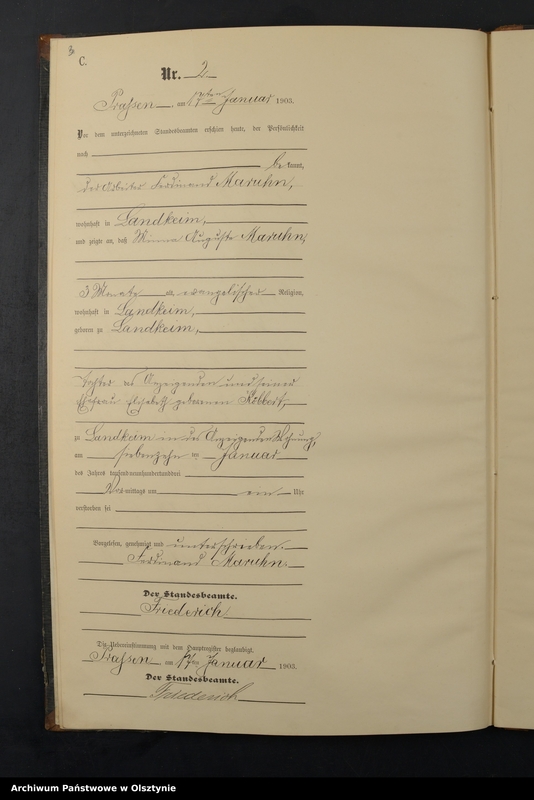 C.
Nr. 2
Prassen, am 17ten Januar 1903.
Vor dem unterzeichneten Standesbeamten erschien heute, der Persönlichkeit
nach
be kannt,
der Arbeiter Ferdinand Maruhn,
wohnhaft in Landkeim,
und zeigte an, daß Minna Auguste Maruhn,
3 Monate alt, evangelischer Religion,
wohnhaft in Landkeim,
geboren zu Landkeim,
Tochter des Anzeigenden und seiner
Ehefrau Elisabeth geborenen Köbbert,
zu Landkeim in des Anzeigenden Wohnung,
am siebenzehn ten Januar
des Jahres tausend neunhundertunddrei
Vor mittags um ein Uhr
verstorben sei
Vorgelesen, genehmigt und unterschrieben.
Ferdinand Maruhn.
Der Standesbeamte.
Friederich.
Die Uebereinstimmung mit dem Hauptregister beglaubigt,
Prassen am 17ten Januar 1903.
Der Standesbeamte.
Friederich
Archiwum Państwowe w Olsztynie